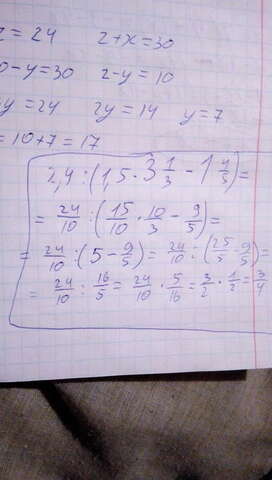 = 24 2+x=30
-y=30 2-y=10
y=24 2y=14 y=7
=10+7=17
2,4:(1,5·3 1/3-1 4/5)=
=24/10:(15/10·10/3-9/5)=
=24/10:(5-9/5)=24/10:(25/5-9/5)=
=24/10:16/5=24/10·5/16=3/2·1/2=3/4